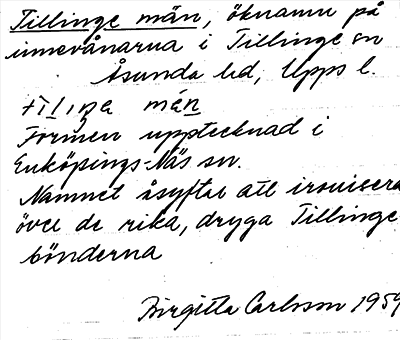 Tillinge män, öknamn på
innevånarna i Tillinge sn
Åsunda hd, Upps l.
män
Formen upptecknad i
Enköpings-Näs sn.
Namnet åsyftar att ironisera
över de rika, dryga Tillinge
bönderna
Birgitta Carlsson 1959